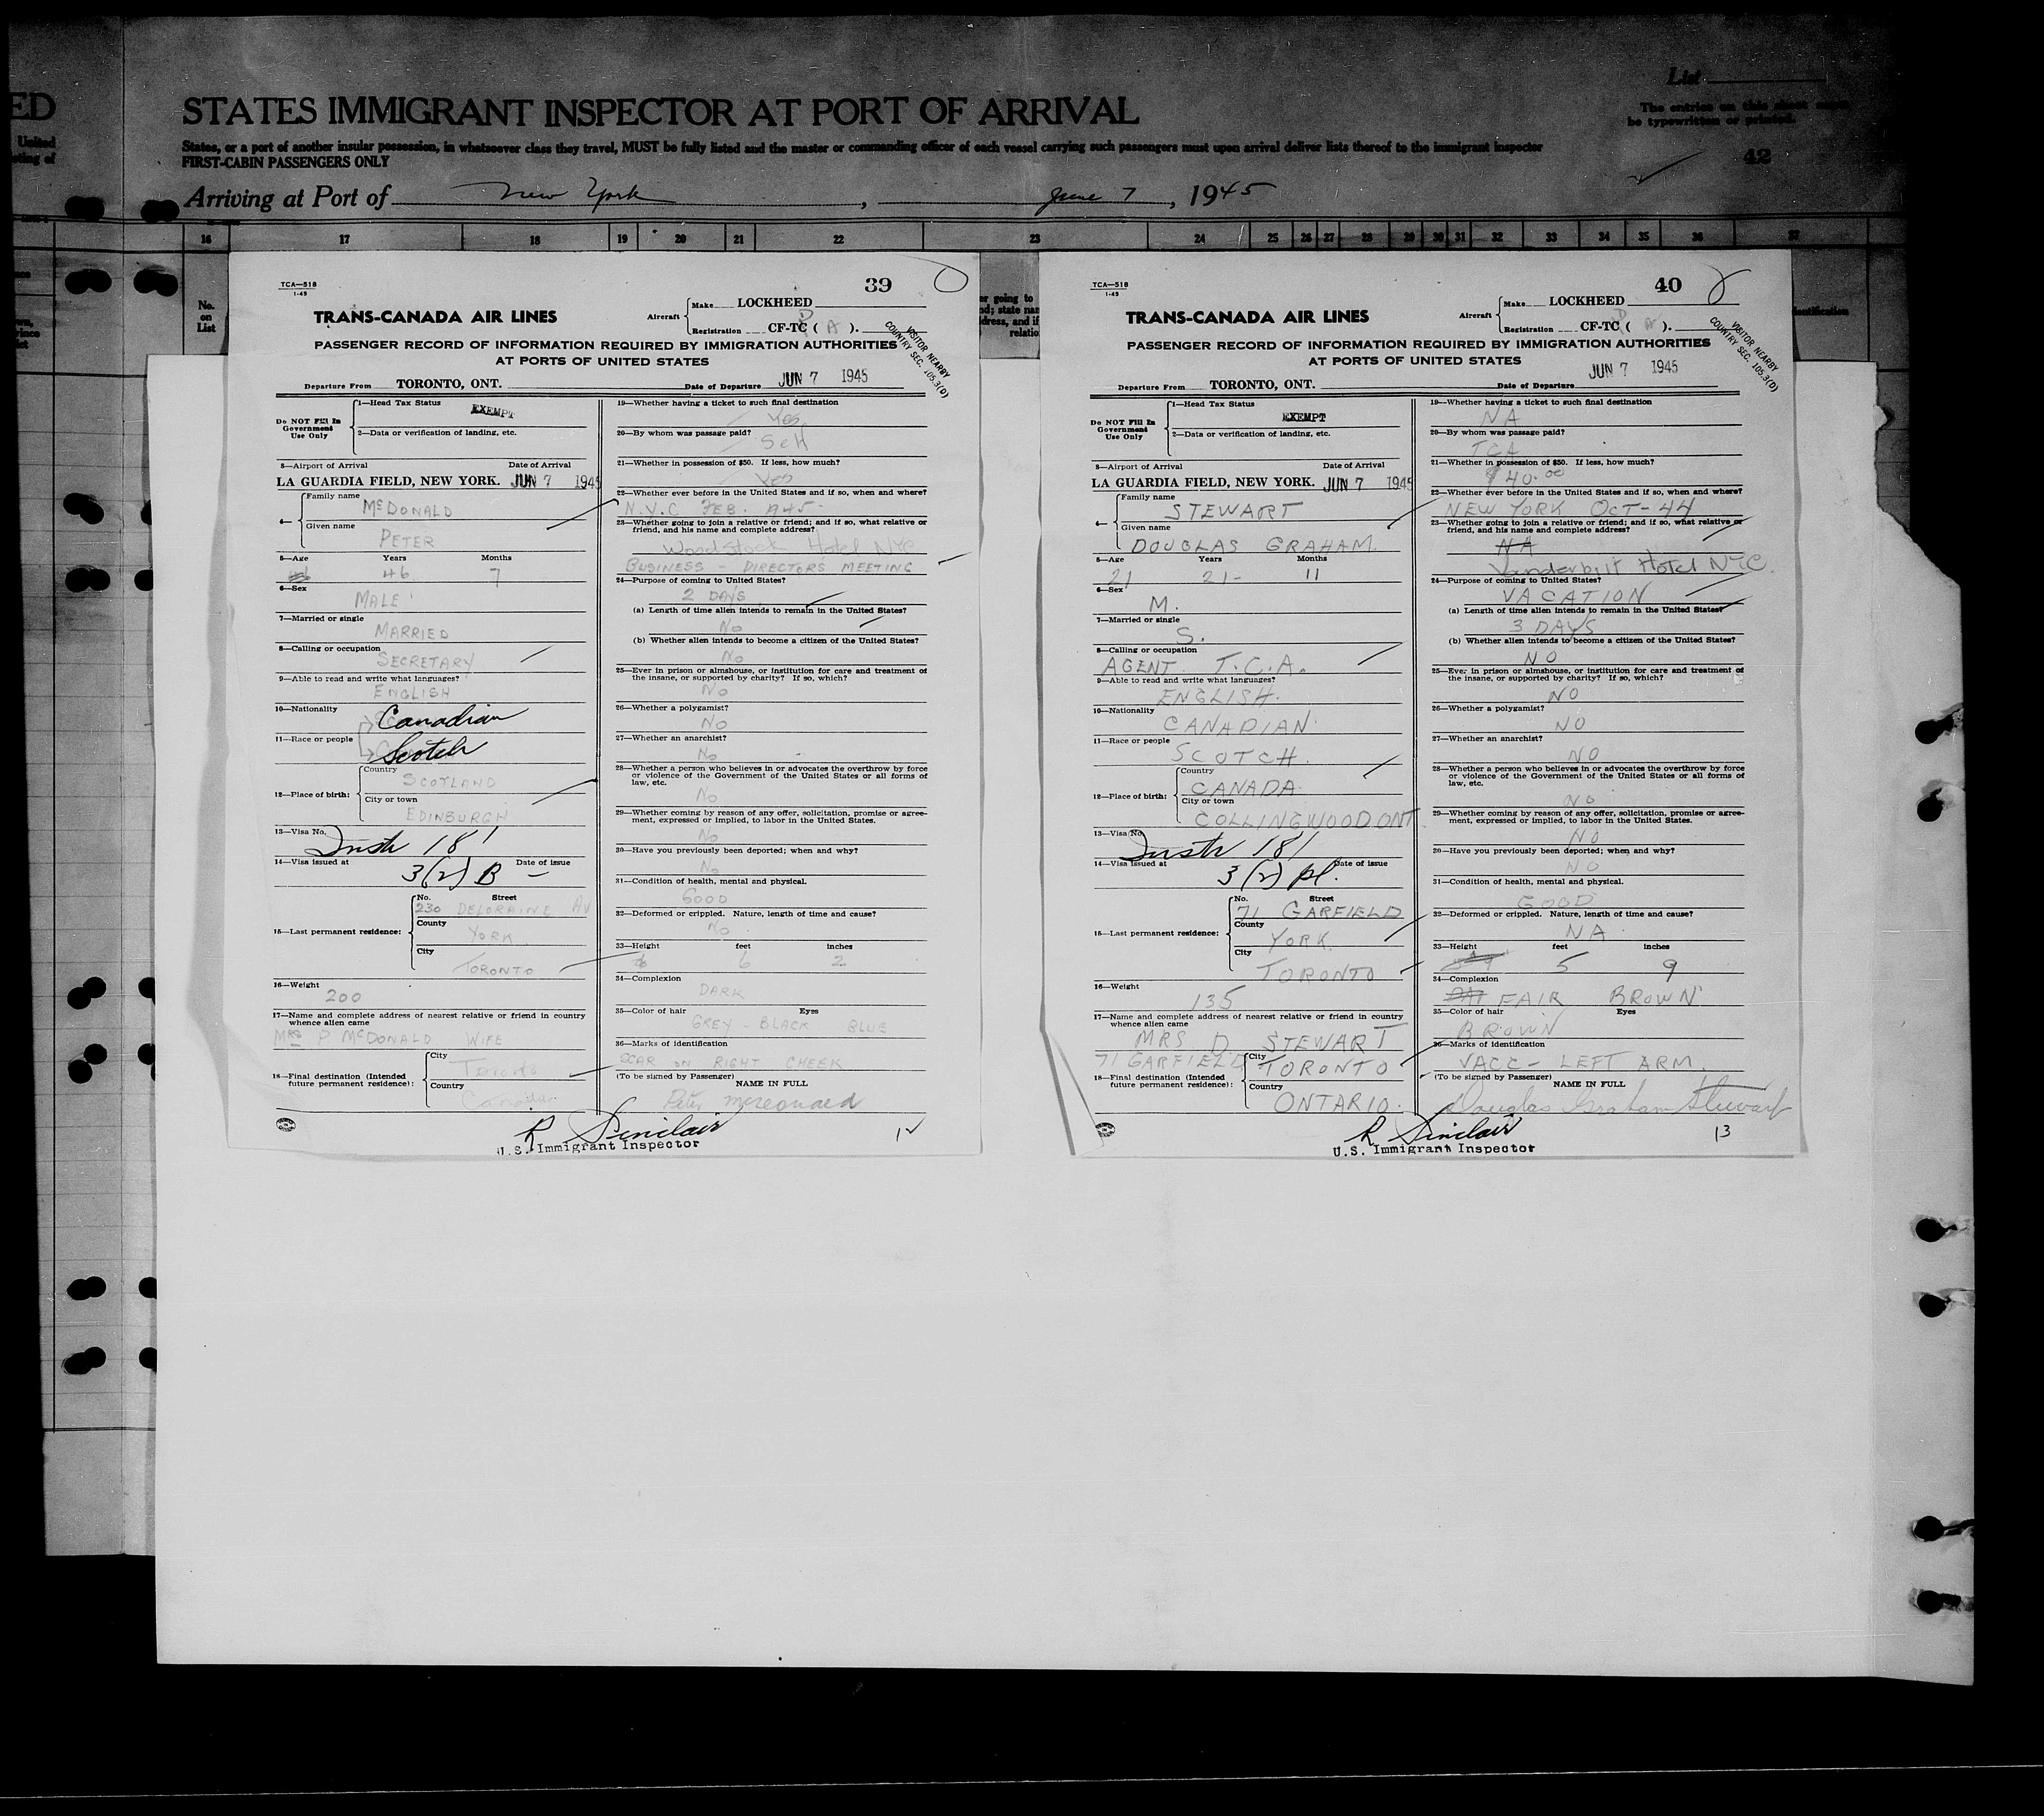 ED
United
eting of
List
The entries on this sheet must
be typewritten or printed.
STATES IMMIGRANT INSPECTOR AT PORT OF ARRIVAL
States, or a port of another insular possession, in whatsoever class they travel, MUST be fully listed and the master or commanding officer of each vessel carrying such passengers must upon arrival deliver lists thereof to the immigrant inspector
FIRST-CABIN PASSENGERS ONLY
42
Arriving at Port of New York, June 7, 1945
16 17 18 19 20 21 22 23 24 25 26 27 28 29 30 31 32 33 34 35 36 37
No.
on
List
TCA—518
1-45
39
TRANS-CANADA AIR LINES
Aircraft
Make LOCKHEED
Registration CF-TC ( A ).
D
VISITOR NEARBY
COUNTRY SEC. 105.3(D)
PASSENGER RECORD OF INFORMATION REQUIRED BY IMMIGRATION AUTHORITIES
AT PORTS OF UNITED STATES
Departure From TORONTO, ONT. Date of Departure JUN 7 1945
Do NOT Fill In
Government
Use Only
1—Head Tax Status EXEMPT
2—Data or verification of landing, etc.
3—Airport of Arrival Date of Arrival
LA GUARDIA FIELD, NEW YORK. JUN 7 1945
4—
Family name
McDONALD
Given name
PETER
5—Age Years Months
46 7
6—Sex
MALE
7—Married or single
MARRIED
8—Calling or occupation
SECRETARY
9—Able to read and write what languages?
ENGLISH
10—Nationality
Canadian
11—Race or people
Scotch
12—Place of birth:
Country
SCOTLAND
City or town
EDINBURGH
13—Visa No.
Instr 181
14—Visa issued at Date of issue
3(2) B —
15—Last permanent residence:
No. Street
230 DELORAINE AV
County
YORK
City
TORONTO
16—Weight
200
17—Name and complete address of nearest relative or friend in country
whence alien came
MRS P McDONALD WIFE
18—Final destination (Intended
future permanent residence):
City
Toronto
Country
Canada
19—Whether having a ticket to such final destination
Yes
20—By whom was passage paid?
Self
21—Whether in possession of $50. If less, how much?
Yes
22—Whether ever before in the United States and if so, when and where?
N.Y.C FEB. 1945
23—Whether going to join a relative or friend; and if so, what relative or
friend, and his name and complete address?
Woodstock Hotel NYC
BUSINESS - DIRECTORS MEETING
24—Purpose of coming to United States?
2 DAYS
(a) Length of time alien intends to remain in the United States?
No
(b) Whether alien intends to become a citizen of the United States?
No
25—Ever in prison or almshouse, or institution for care and treatment of
the insane, or supported by charity? If so, which?
No
26—Whether a polygamist?
No
27—Whether an anarchist?
No
28—Whether a person who believes in or advocates the overthrow by force
or violence of the Government of the United States or all forms of
law, etc.
No
29—Whether coming by reason of any offer, solicitation, promise or agree-
ment, expressed or implied, to labor in the United States.
No
30—Have you previously been deported; when and why?
No
31—Condition of health, mental and physical.
GOOD
32—Deformed or crippled. Nature, length of time and cause?
No
33—Height feet inches
6 2
34—Complexion
DARK
35—Color of hair Eyes
GREY - BLACK BLUE
36—Marks of identification
SCAR ON RIGHT CHEEK
(To be signed by Passenger)
NAME IN FULL
Peter McDonald
R Sinclair
U.S. Immigrant Inspector
12
TCA—518
1-45
40
TRANS-CANADA AIR LINES
Aircraft
Make LOCKHEED
Registration CF-TC ( A ).
D
VISITOR NEARBY
COUNTRY SEC. 105.3(D)
PASSENGER RECORD OF INFORMATION REQUIRED BY IMMIGRATION AUTHORITIES
AT PORTS OF UNITED STATES
Departure From TORONTO, ONT. Date of Departure JUN 7 1945
Do NOT Fill In
Government
Use Only
1—Head Tax Status EXEMPT
2—Data or verification of landing, etc.
3—Airport of Arrival Date of Arrival
LA GUARDIA FIELD, NEW YORK. JUN 7 1945
4—
Family name
STEWART
Given name
DOUGLAS GRAHAM
5—Age Years Months
21 21- 11
6—Sex
M.
7—Married or single
S.
8—Calling or occupation
AGENT T.C.A.
9—Able to read and write what languages?
ENGLISH.
10—Nationality
CANADIAN
11—Race or people
SCOTCH.
12—Place of birth:
Country
CANADA
City or town
COLLINGWOOD ONT
13—Visa No.
Instr 181
14—Visa issued at Date of issue
3(2) pl.
15—Last permanent residence:
No. Street
71 GARFIELD
County
YORK
City
TORONTO
16—Weight
135
17—Name and complete address of nearest relative or friend in country
whence alien came
MRS. D STEWART
71 GARFIELD
18—Final destination (Intended
future permanent residence):
City
TORONTO
Country
ONTARIO.
19—Whether having a ticket to such final destination
NA
20—By whom was passage paid?
TCA
21—Whether in possession of $50. If less, how much?
$40.00
22—Whether ever before in the United States and if so, when and where?
NEW YORK OCT-44
23—Whether going to join a relative or friend; and if so, what relative or
friend, and his name and complete address?
NA
Vanderbilt Hotel NYC.
24—Purpose of coming to United States?
VACATION
(a) Length of time alien intends to remain in the United States?
3 DAYS
(b) Whether alien intends to become a citizen of the United States?
NO
25—Ever in prison or almshouse, or institution for care and treatment of
the insane, or supported by charity? If so, which?
NO
26—Whether a polygamist?
NO
27—Whether an anarchist?
NO
28—Whether a person who believes in or advocates the overthrow by force
or violence of the Government of the United States or all forms of
law, etc.
NO
29—Whether coming by reason of any offer, solicitation, promise or agree-
ment, expressed or implied, to labor in the United States.
NO
30—Have you previously been deported; when and why?
NO
31—Condition of health, mental and physical.
GOOD
32—Deformed or crippled. Nature, length of time and cause?
NA
33—Height feet inches
5 9
34—Complexion
FAIR BROWN
35—Color of hair Eyes
BROWN
36—Marks of identification
VACC- LEFT ARM.
(To be signed by Passenger)
NAME IN FULL
Douglas Graham Stewart
R Sinclair
U.S. Immigrant Inspector
13